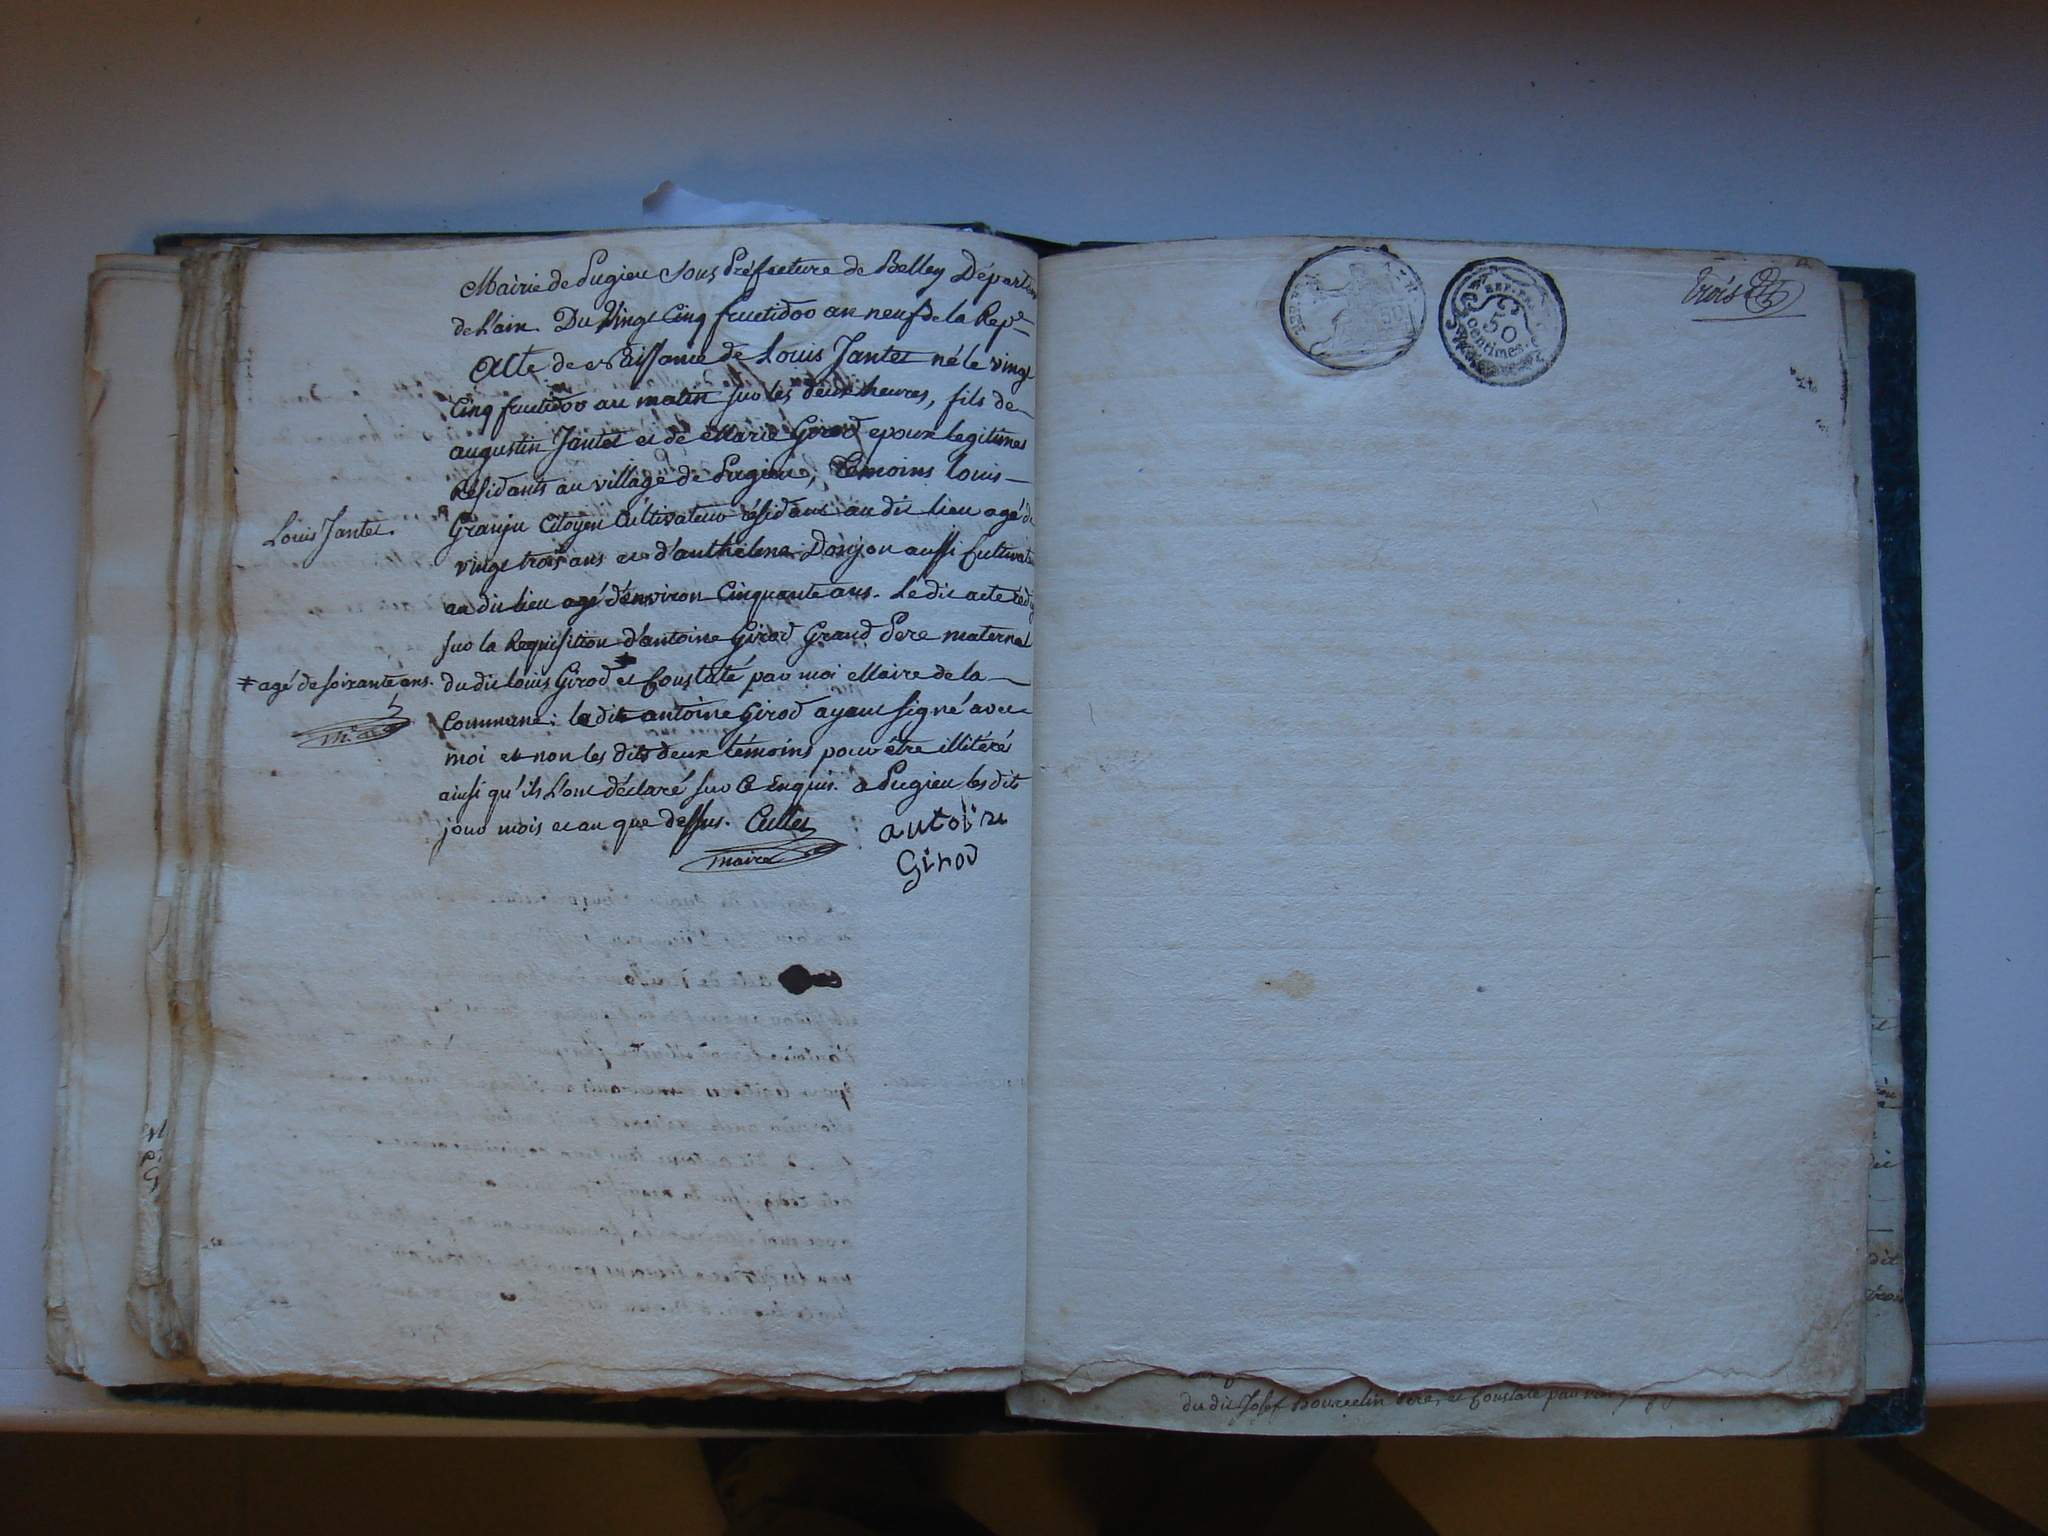 Mairie de Pugieu Sous Préfecture de Belley Départ
de L'ain. Du Vingt Cinq fructidor an neuf de la Rep.e
Acte de Naissance de Louis Jantet né le vingt
Cinq fructidor au matin sur les deux heures, fils de
augustin Jantet et de Marie Girod epoux legitimes
Residants au village de Pugieu, Temoins louis
Granju Citoyen Cultivateur résidant au dit lieu agé de
vingt trois ans et d'anthelme Donjon aussi Cultivat
au dit lieu agé d'environ Cinquante ans. Le dit acte rédig
sur la Requisition d'antoine Girod Grand Pere maternel
du dit louis Girod et Constaté par moi Maire de la
Commune; le dit antoine Girod ayant signé avec
moi et non les dits deux témoins pour être illitéré
ainsi qu'ils L'ont déclaré sur Ce Enquis. a Pugieu les dits
jour mois et an que dessus.
maire
antoine
Girod
Louis Jantet.
# agé de soixante ans.
REP. FRA
50
centimes.
50
trois
du dit Josef Bourcelin Pere, et Constaté par
dit